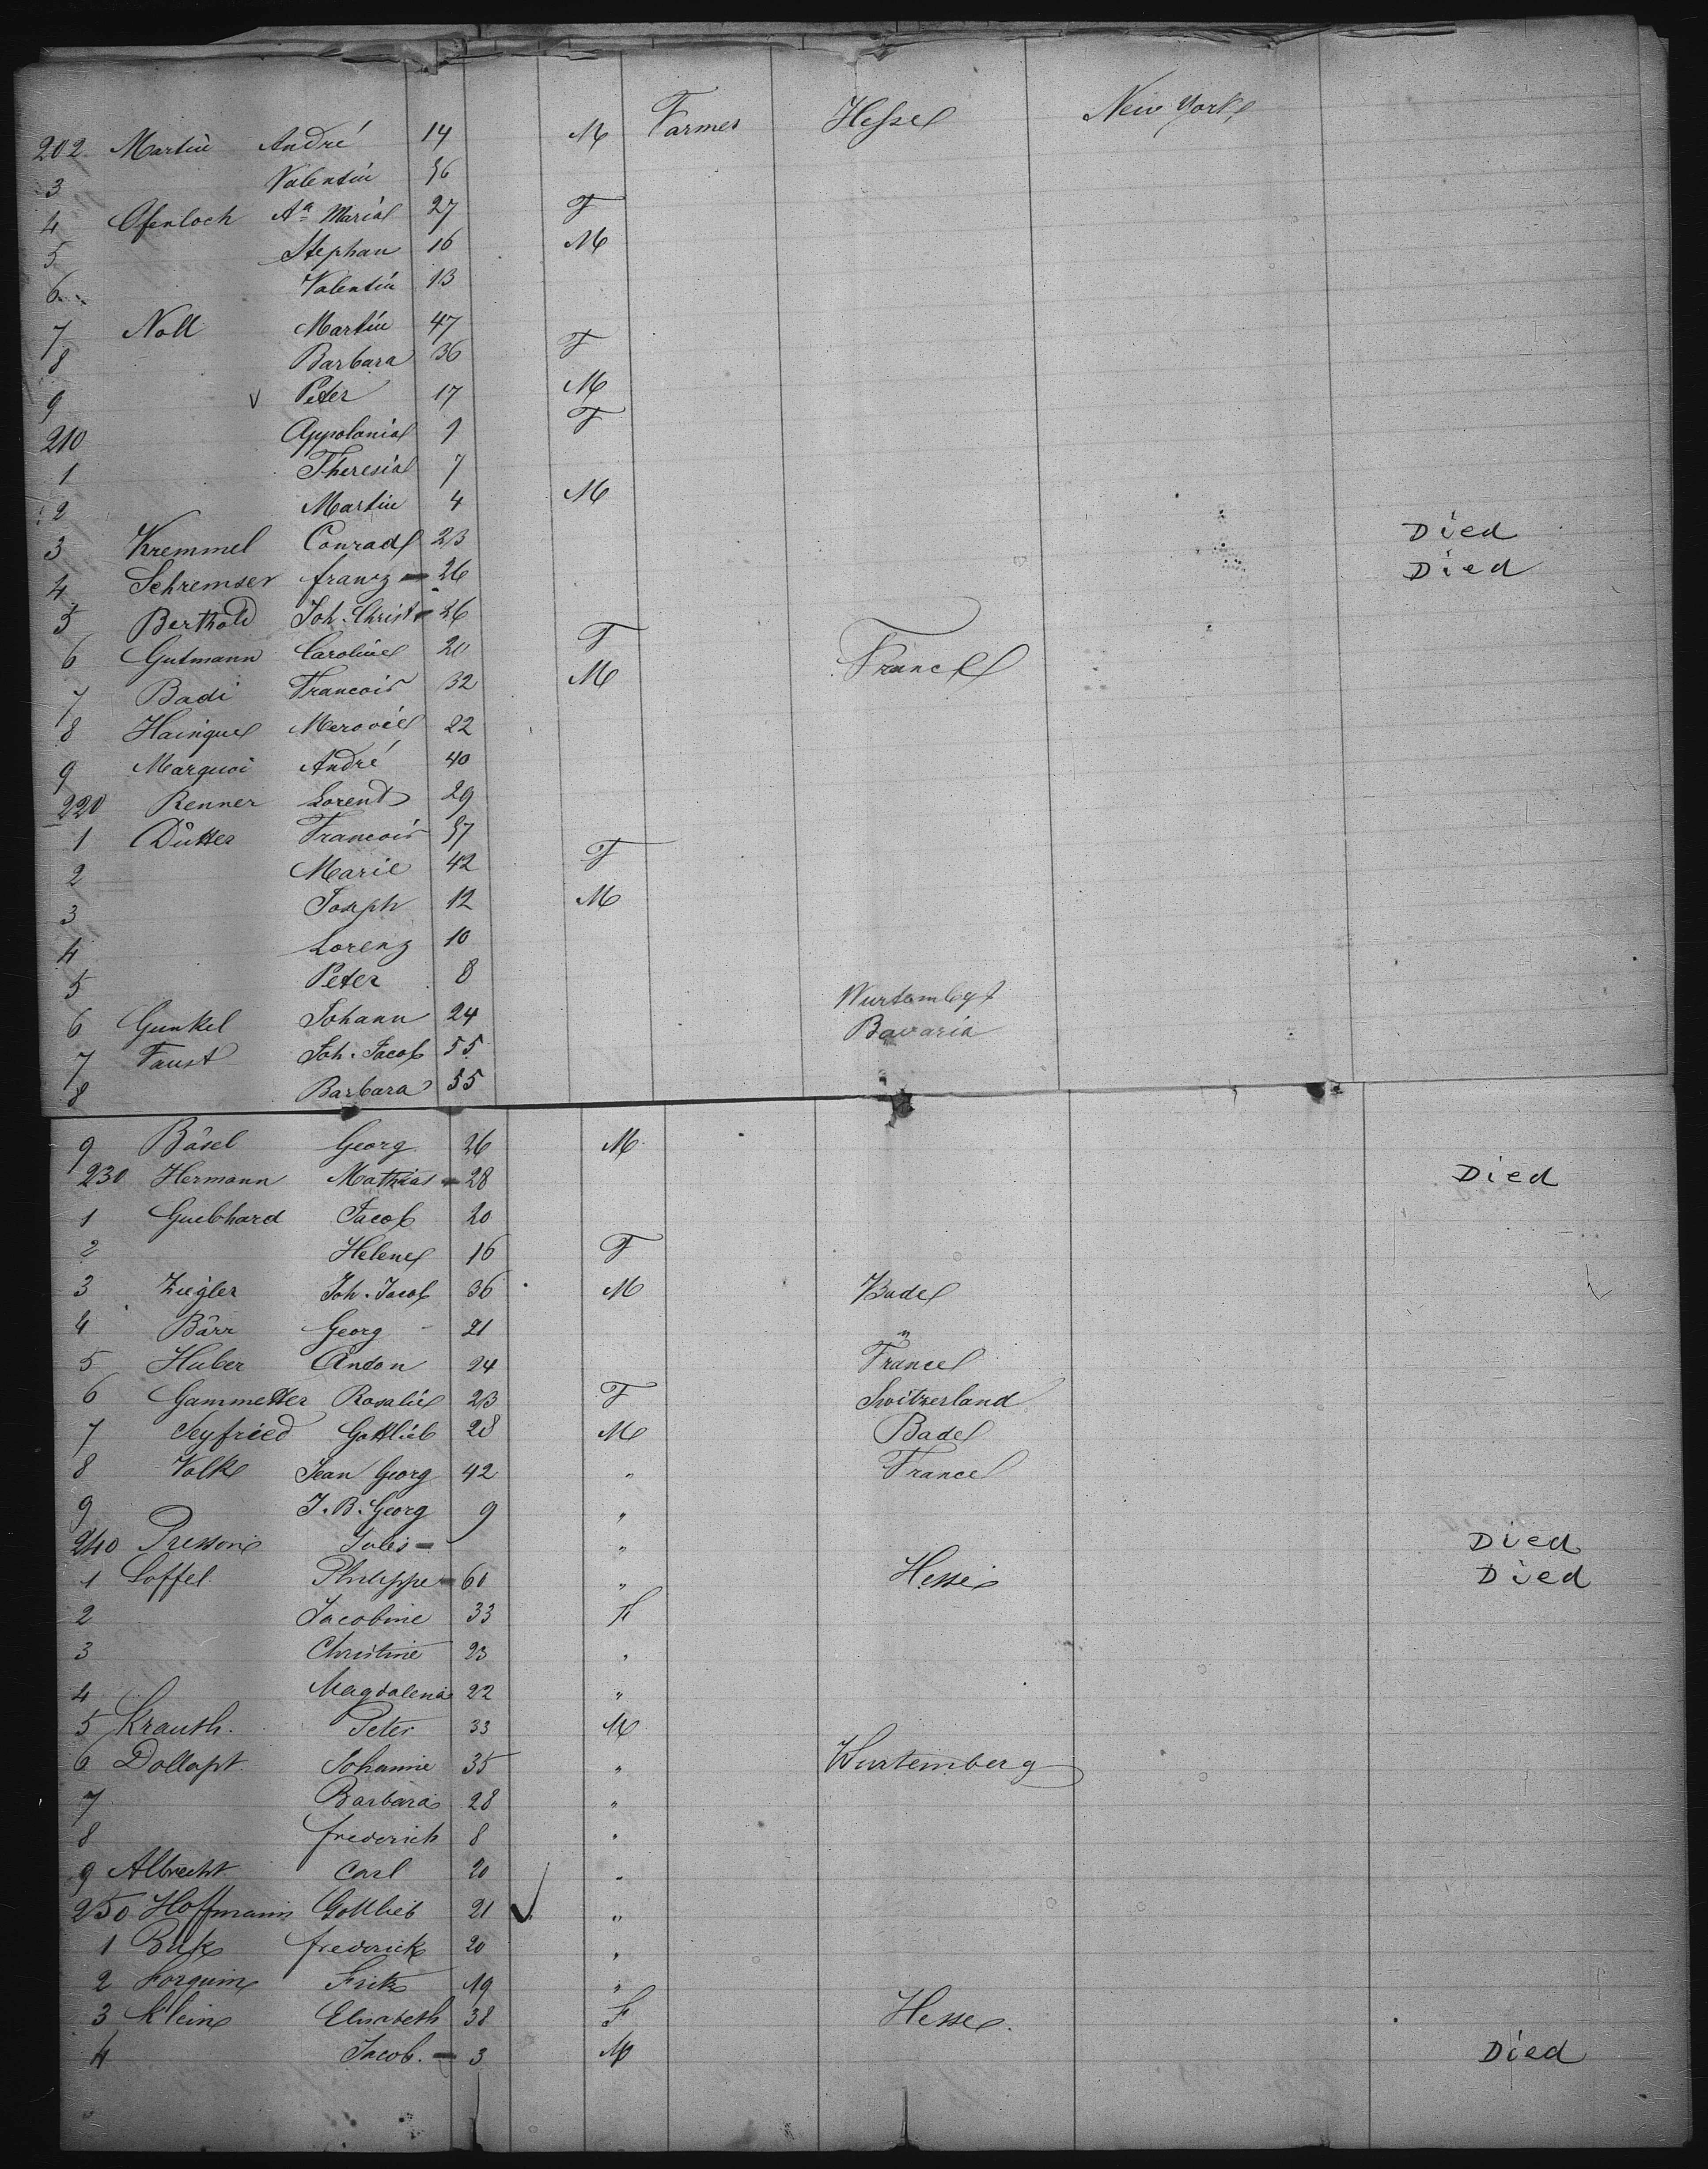 202 Martin André 14 M Farmer Hesse New York
3 Valentin 56
4 Ofenloch Aª Maria 27 F
5 Stephan 16 M
6 Valentin 13
7 Noll Martin 47
8 Barbara 36 F
9 Peter 17 M
210 Appolonia 9 F
1 Theresia 7
2 Martin 4 M
3 Kremmel Conrad 23 Died
4 Schremser franz 26 Died
5 Berthold Joh. Christ 26
6 Gutmann Caroline 20 F France
7 Badi Francois 32 M
8 Haingue Merovée 22
9 Marquoi André 40
220 Renner Lorend 29
1 Dütter Francois 57
2 Marie 42 F
3 Joseph 12 M
4 Lorenz 10
5 Peter 8
6 Gunkel Johann 24 Wurtembgt
7 Faust Joh. Jacob 55 Bavaria
8 Barbara 55
9 Bäsel Georg 26 M
230 Hermann Mathias 28 Died
1 Guebhard Jacob 20
2 Helene 16 F
3 Ziegler Joh. Jacob 36 M Bade
4 Bärr Georg 21 "
5 Huber Andon 24 France
6 Gammetter Rosalie 23 F Switzerland
7 Seyfried Gottlieb 28 M Bade
8 Volk Jean Georg 42 " France
9 J. B. Georg 9 "
240 Presson Jules " Died
1 Loffel Philippe 60 " Hesse Died
2 Jacobine 33 F
3 Christine 23 "
4 Magdalena 22 "
5 Krauth. Peter 33 M
6 Dollapt Johanne 35 " Wurtemberg
7 Barbara 28 "
8 frederich 8 "
9 Albrecht Carl 20 "
250 Hoffmann Gottlieb 21 "
1 Buk frederick 20 "
2 Forquin Fritz 19 "
3 Klein Elisabeth 38 F Hesse.
4 Jacob. 3 M Died